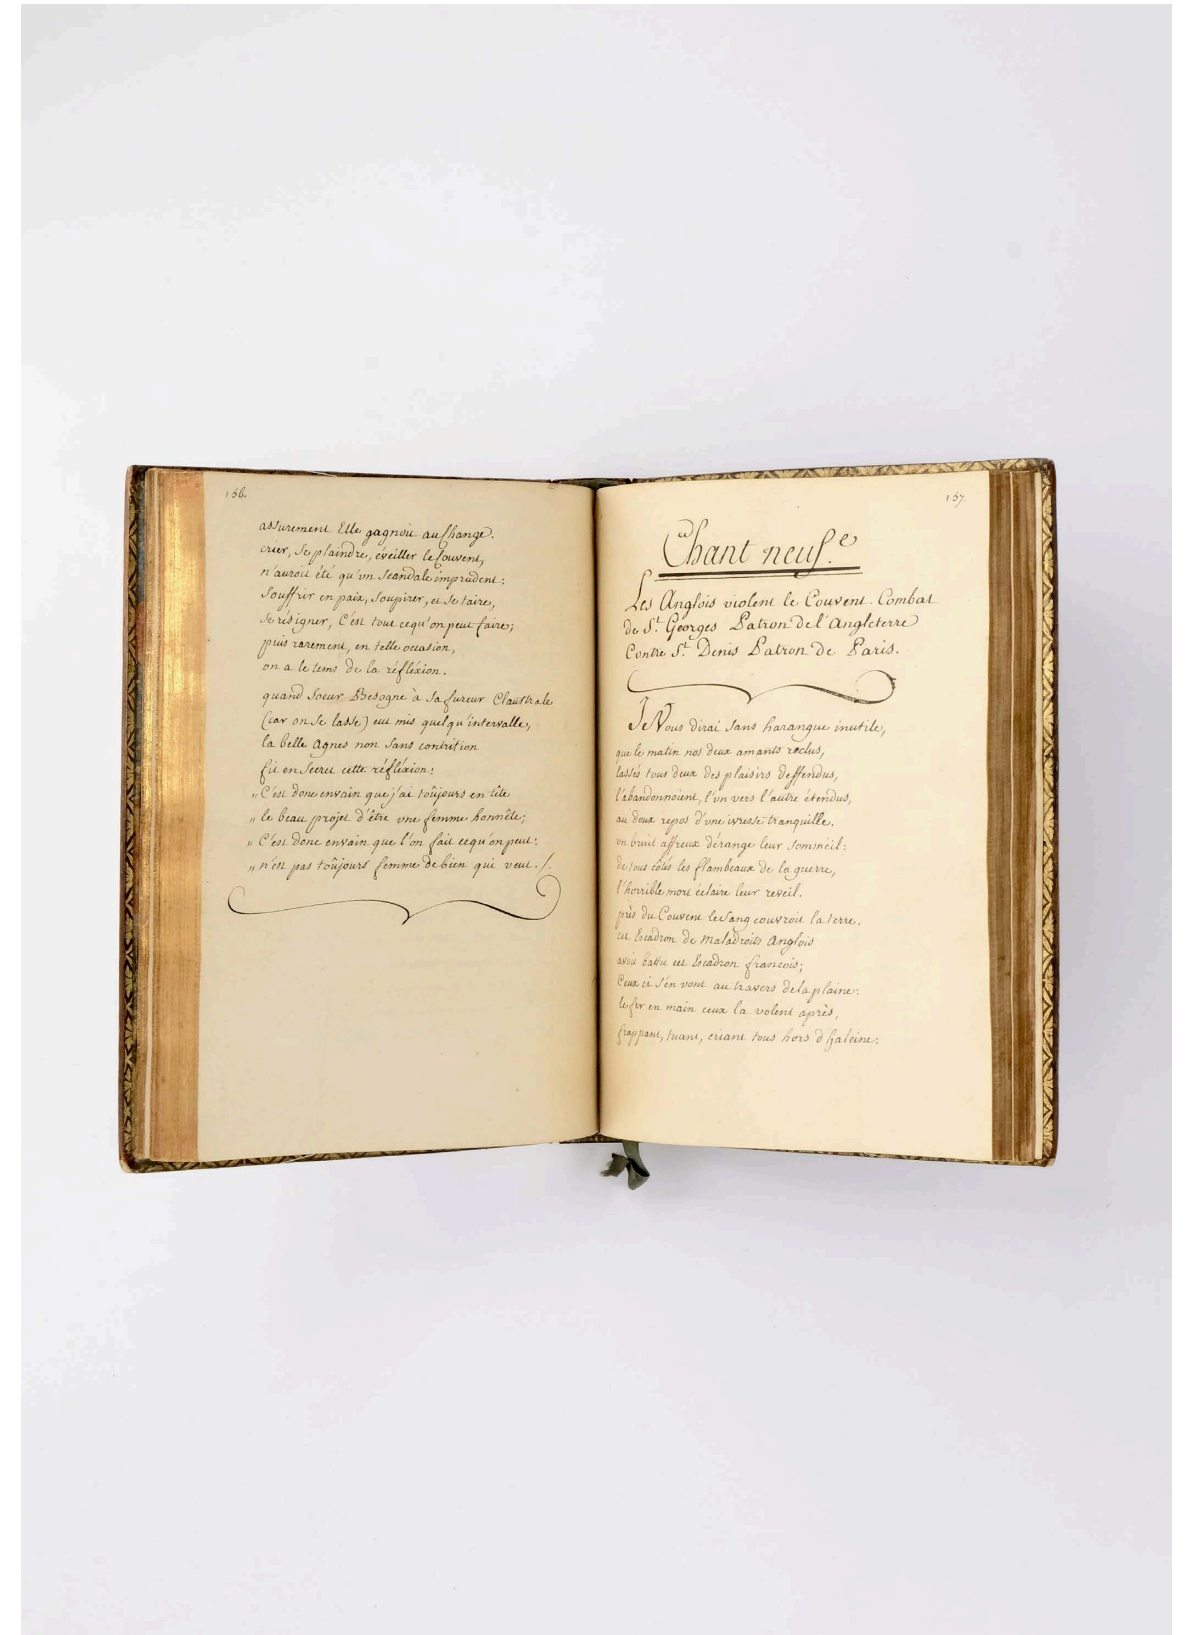 156.
assurement Elle gagnoit au Change.
crier, se plaindre, éveiller le Couvent,
n'auroit été qu'un scandale imprudent:
souffrir en paix, soupirer, et se taire,
se résigner, C'est tout cequ'on peut faire;
puis rarement, en telle occasion,
on a le tems de la réfléxion.
quand soeur Besogne à sa fureur Claustrale
(car on se lasse) eut mis quelqu'intervalle,
la belle Agnes non sans contrition
fit en secret cette réfléxion:
„ C'est donc envain que j'ai toûjours en tête
„ le beau projet d'être une femme honnête;
„ C'est donc envain que l'on fait cequ'on peut:
„ n'est pas toûjours femme de bien qui veut ./.
157.
Chant neuf.e
Les Anglois violent le Couvent. Combat
de St. Georges Patron de l'Angleterre
Contre St. Denis Patron de Paris.
Je Vous dirai sans harangue inutile,
que le matin nos deux amants reclus,
lassés tous deux des plaisirs deffendus,
s'abandonnoient, l'un vers l'autre étendus,
au doux repos d'une ivresse tranquille.
un bruit affreux dérange leur sommeil:
de tous côtés les flambeaux de la guerre,
l'horrible mort éclaire leur reveil.
près du Couvent le sang couvroit la terre.
cet Escadron de maladroits Anglois
avoit battu cet Escadron francois;
Ceux ci s'en vont au travers de la plaine:
le fer en main ceux la volent après,
frappant, tuant, criant tous hors d'haleine: